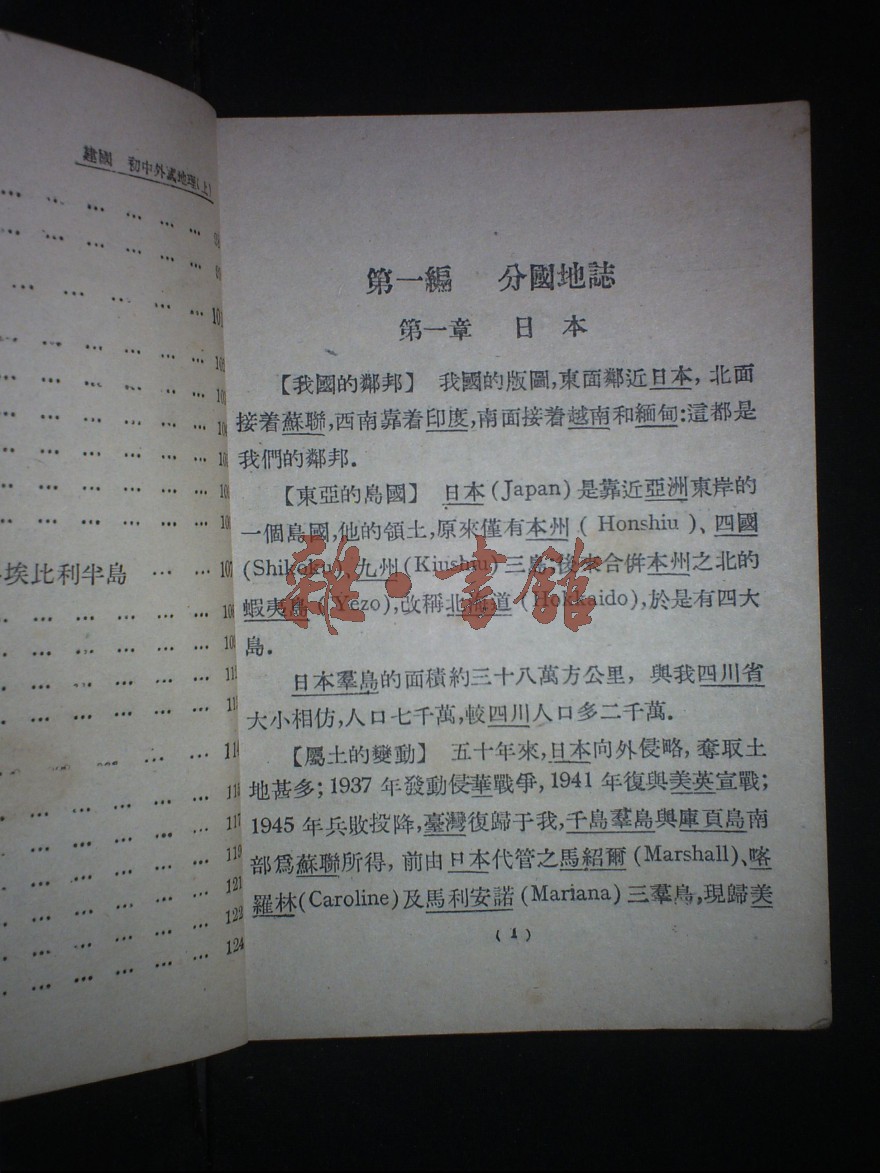 建國 初中外國地理(上)
101
埃比利半島 … … 107
114
117
119
121
122
124
第一編 分國地誌
第一章 日本
【我國的鄰邦】 我國的版圖,東面鄰近日本, 北面
接着蘇聯,西南靠着印度,南面接着越南和緬甸:這都是
我們的鄰邦.
【東亞的島國】 日本(Japan)是靠近亞洲東岸的
一個島國,他的領土,原來僅有本州 ( Honshiu )、四國
(Shikoku)、九州(Kiushiu)三島;後來合併本州之北的
蝦夷島 (Yezo),改稱北海道 (Hokkaido),於是有四大
島.
日本羣島的面積約三十八萬方公里, 與我四川省
大小相仿,人口七千萬,較四川人口多二千萬.
【屬土的變動】 五十年來,日本向外侵略, 奪取土
地甚多; 1937 年發動侵華戰爭, 1941 年復與美英宣戰;
1945 年兵敗投降,臺灣復歸于我,千島羣島與庫頁島南
部爲蘇聯所得, 前由日本代管之馬紹爾 (Marshall)、喀
羅林(Caroline)及馬利安諾 (Mariana) 三羣島,現歸美
(1)
雜·書館